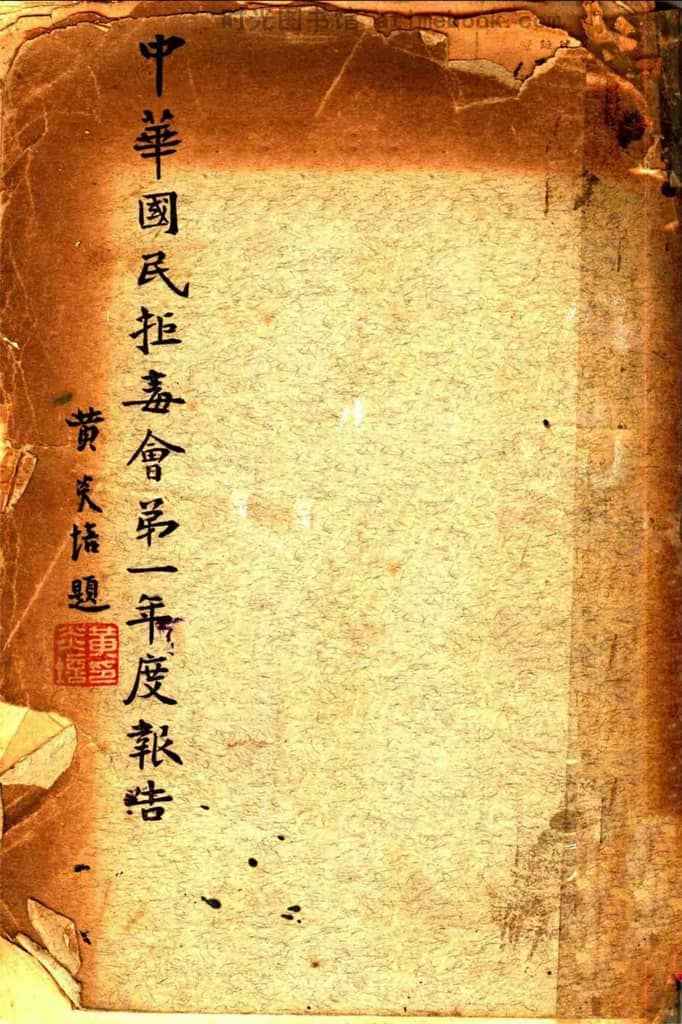 中華國民拒毒會第一年度報告
黃炎培題
黃炎培印
时光图书馆